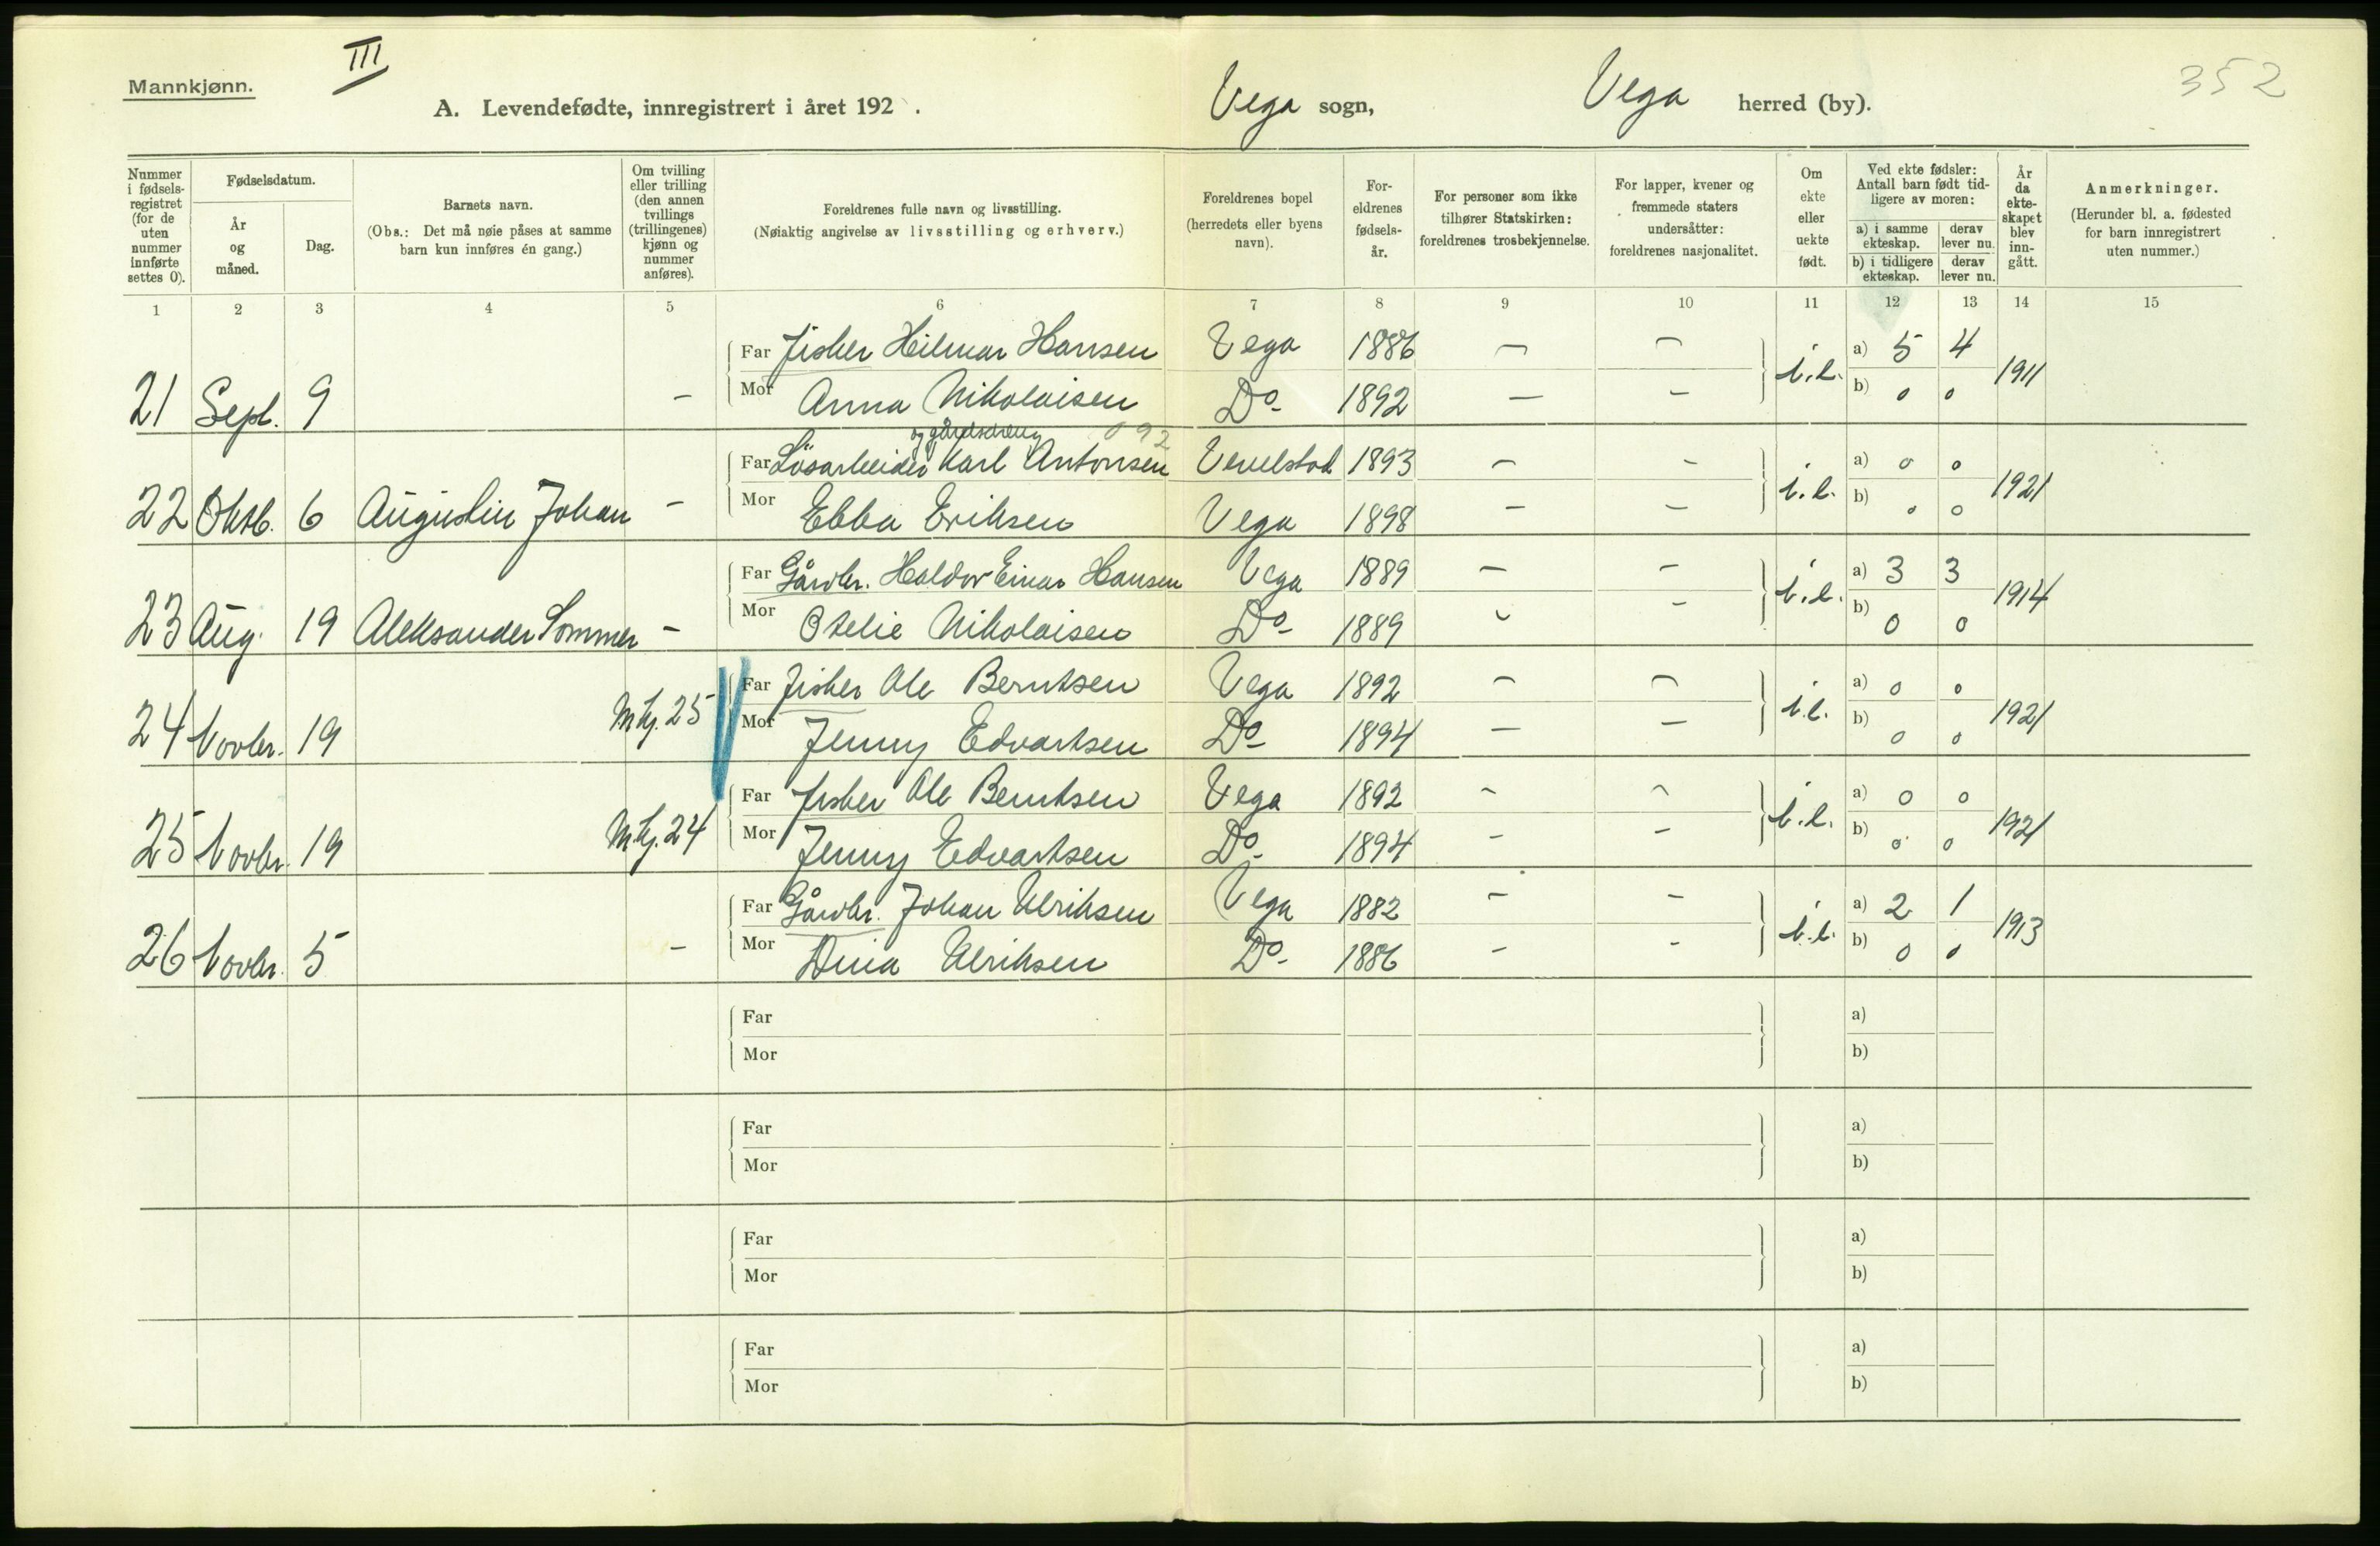 Mannkjønn.
III
352
A. Levendefødte, innregistrert i året 192 .
Vega sogn, Vega herred (by).
Nummer i fødsels- registret (for de uten nummer innførte settes 0).
Fødselsdatum.
År og måned.
Dag.
Barnets navn.
(Obs.: Det må nøie påses at samme barn kun innføres én gang.)
Om tvilling eller trilling (den annen tvillings (trillingenes) kjønn og nummer anføres).
Foreldrenes fulle navn og livsstilling.
(Nøiaktig angivelse av livsstilling og erhverv.)
Foreldrenes bopel (herredets eller byens navn).
For- eldrenes fødsels- år.
For personer som ikke tilhører Statskirken: foreldrenes trosbekjennelse.
For lapper, kvener og fremmede staters undersåtter: foreldrenes nasjonalitet.
Om ekte eller uekte født.
Ved ekte fødsler: Antall barn født tid- ligere av moren:
a) i samme ekteskap. derav lever nu.
b) i tidligere ekteskap. derav lever nu.
År da ekte- skapet blev inn- gått.
Anmerkninger.
(Herunder bl. a. fødested for barn innregistrert uten nummer.)
1 2 3 4 5 6 7 8 9 10 11 12 13 14 15
Far Fisher Hilmar Hansen Vega 1886 – – a) 5 4
21 Sept. 9 – i.e. 1911
Mor Anna Nikolaisen Do- 1892 – – b) 0 0
og gårdsdreng 092
Far Løsarbeider Karl Antonsen Vevelstad 1893 – – a) 0 0
22 Oktb. 6 Augustin Johan – i.e. 1921
Mor Ebba Eriksen Vega 1898 – – b) 0 0
Far Gårdbr. Haldor Einar Hansen Vega 1889 – – a) 3 3
23 Aug. 19 Aleksander Sommer – i.e. 1914
Mor Otelie Nikolaisen Do- 1889 – – b) 0 0
Far Fisker Ole Berntsen Vega 1892 – – a) 0 0
24 Novbr. 19 M kj. 25 i.e. 1921
Mor Jenny Edvartsen Do- 1894 – – b) 0 0
Far Fisker Ole Berntsen Vega 1892 – – a) 0 0
25 Novbr. 19 M kj. 24 i.e. 1921
Mor Jenny Edvartsen Do- 1894 – – b) 0 0
Far Gårdbr. Johan Ulriksen Vega 1882 – – a) 2 1
26 Novbr. 5 – i.e. 1913
Mor Dina Ulriksen Do- 1886 – – b) 0 0
Far a)
Mor b)
Far a)
Mor b)
Far a)
Mor b)
Far a)
Mor b)